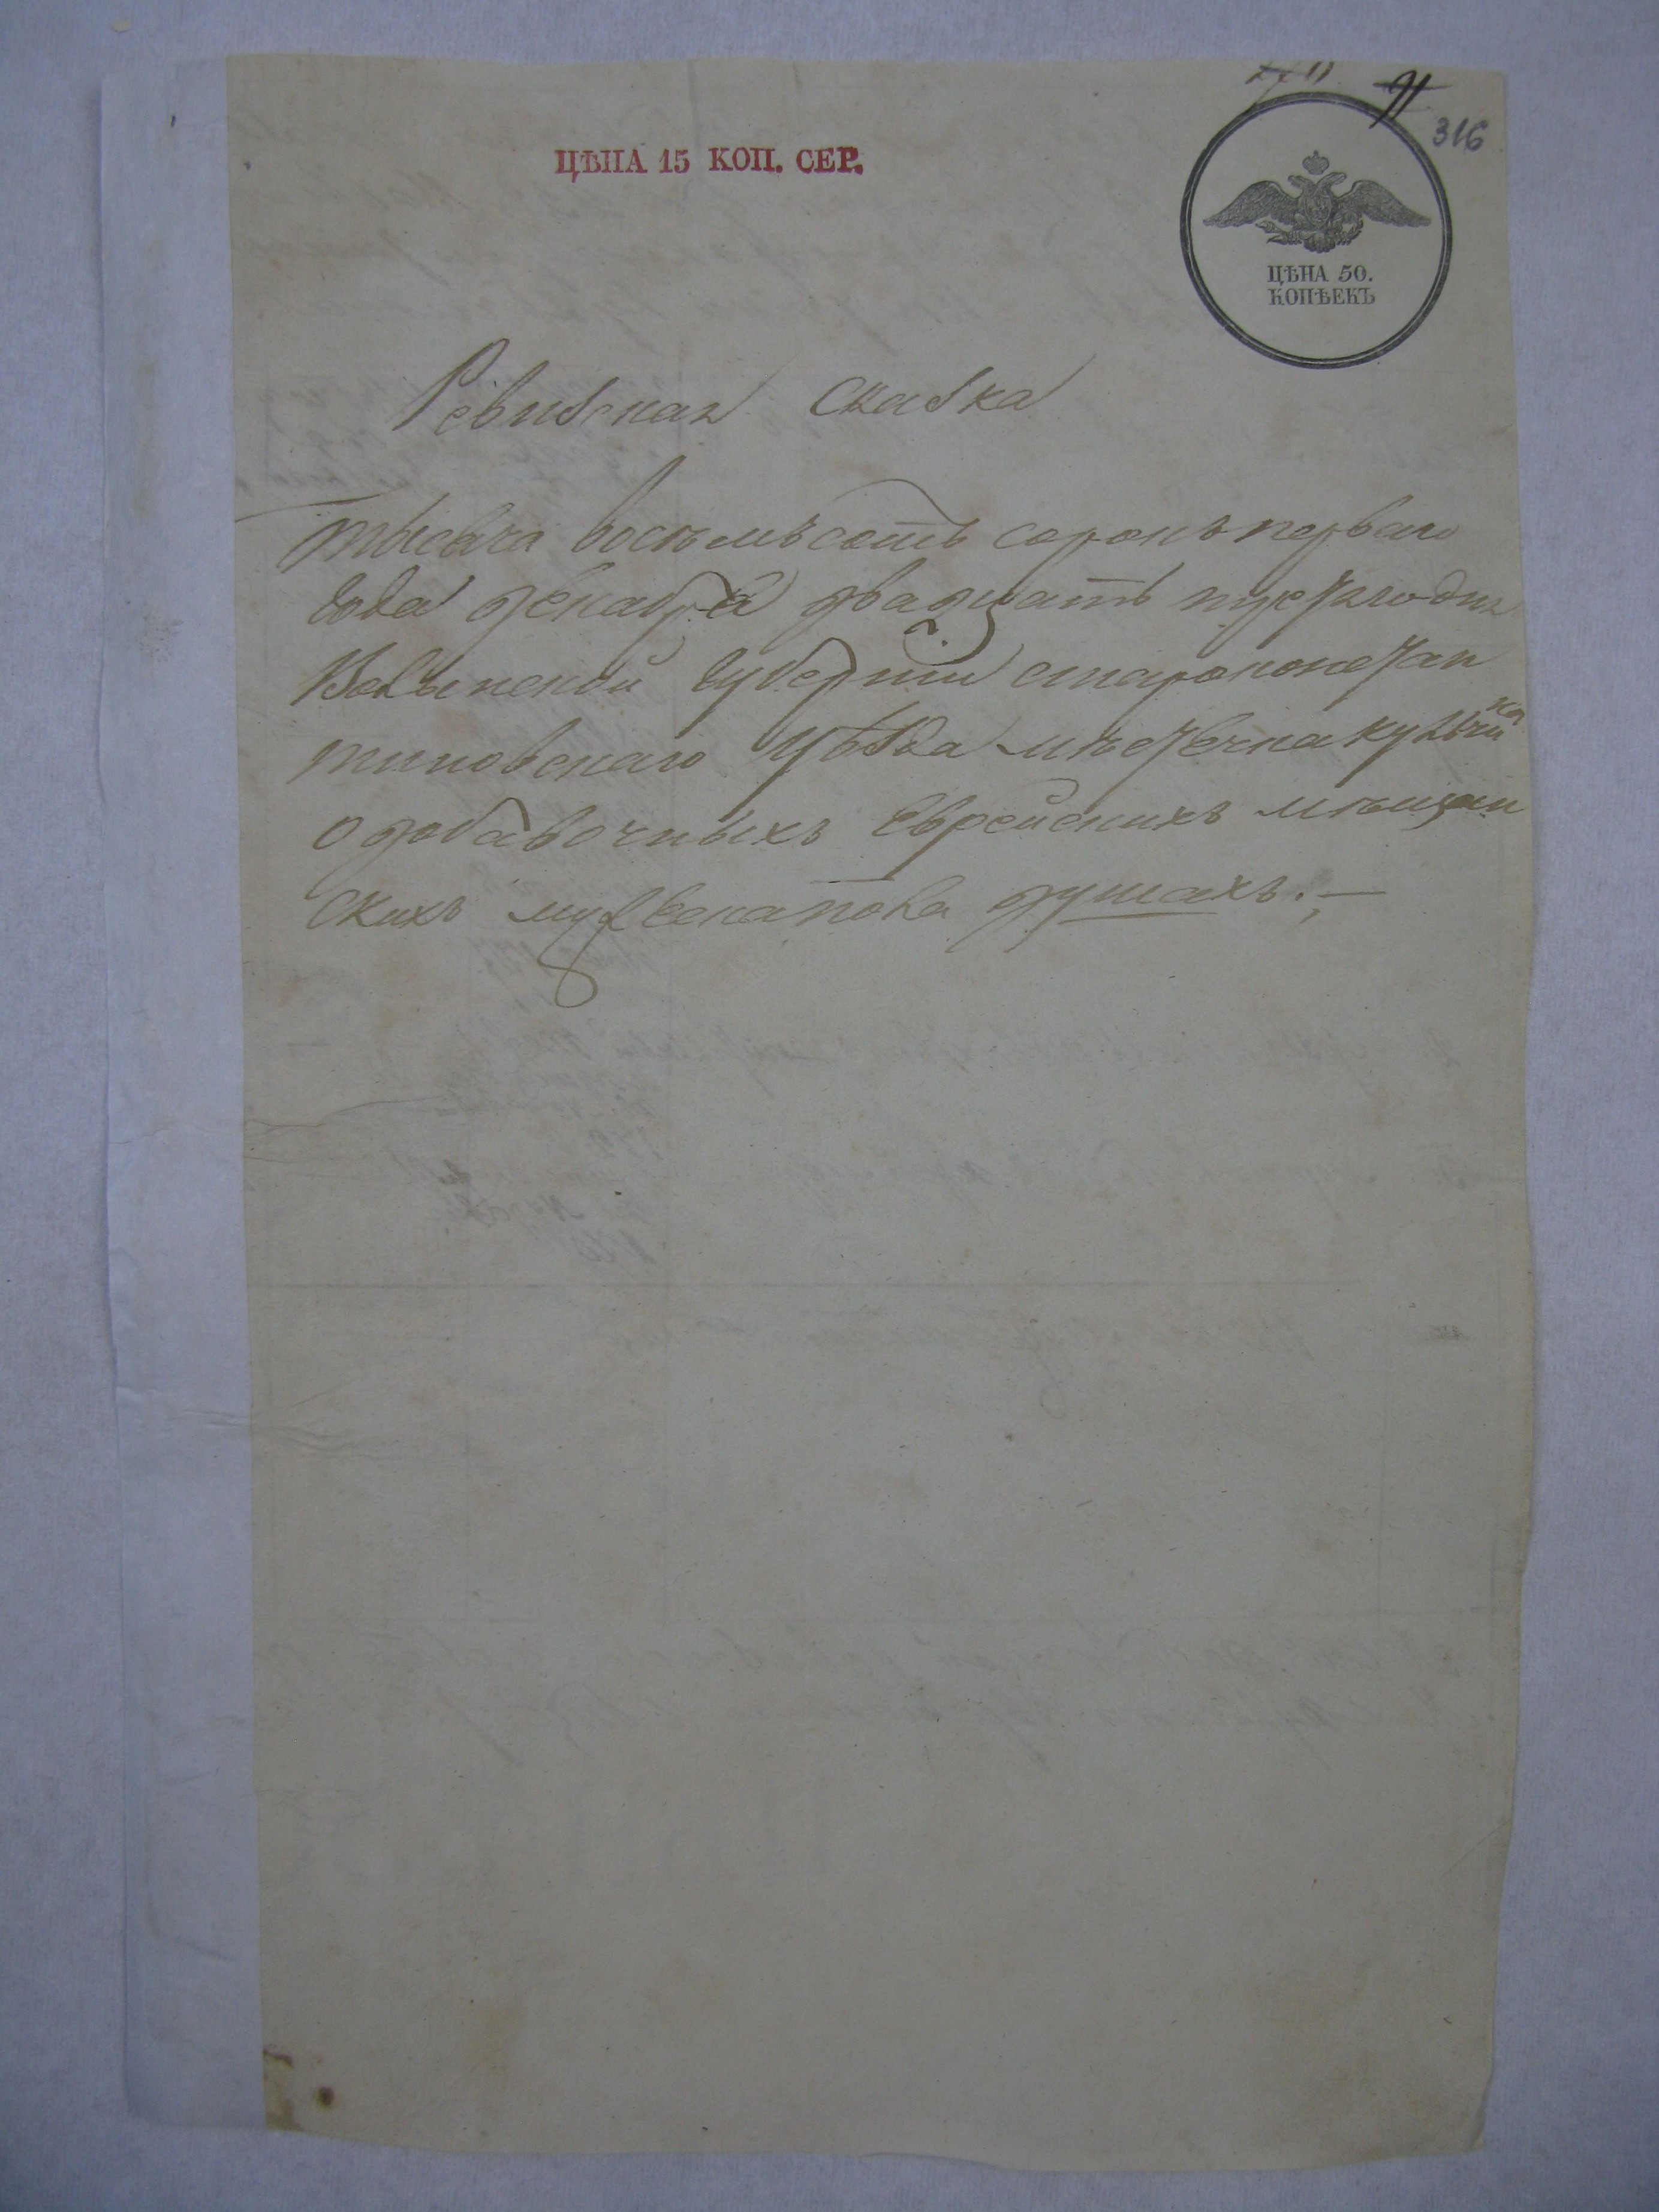 91
316
ЦѢНА 15 КОП. СЕР.
ЦѢНА 50.
КОПѢЕКЪ
Ревизская сказка
тысяча восемъсотъ сорокъ перваго
года декабря двадцать третяго дня
Волынской губернии староконстан
тиновскаго уѣзда мѣстечка кульчи
на
о добавочныхъ еврейскихъ мѣщан
скихъ мужескапола душахъ.;—